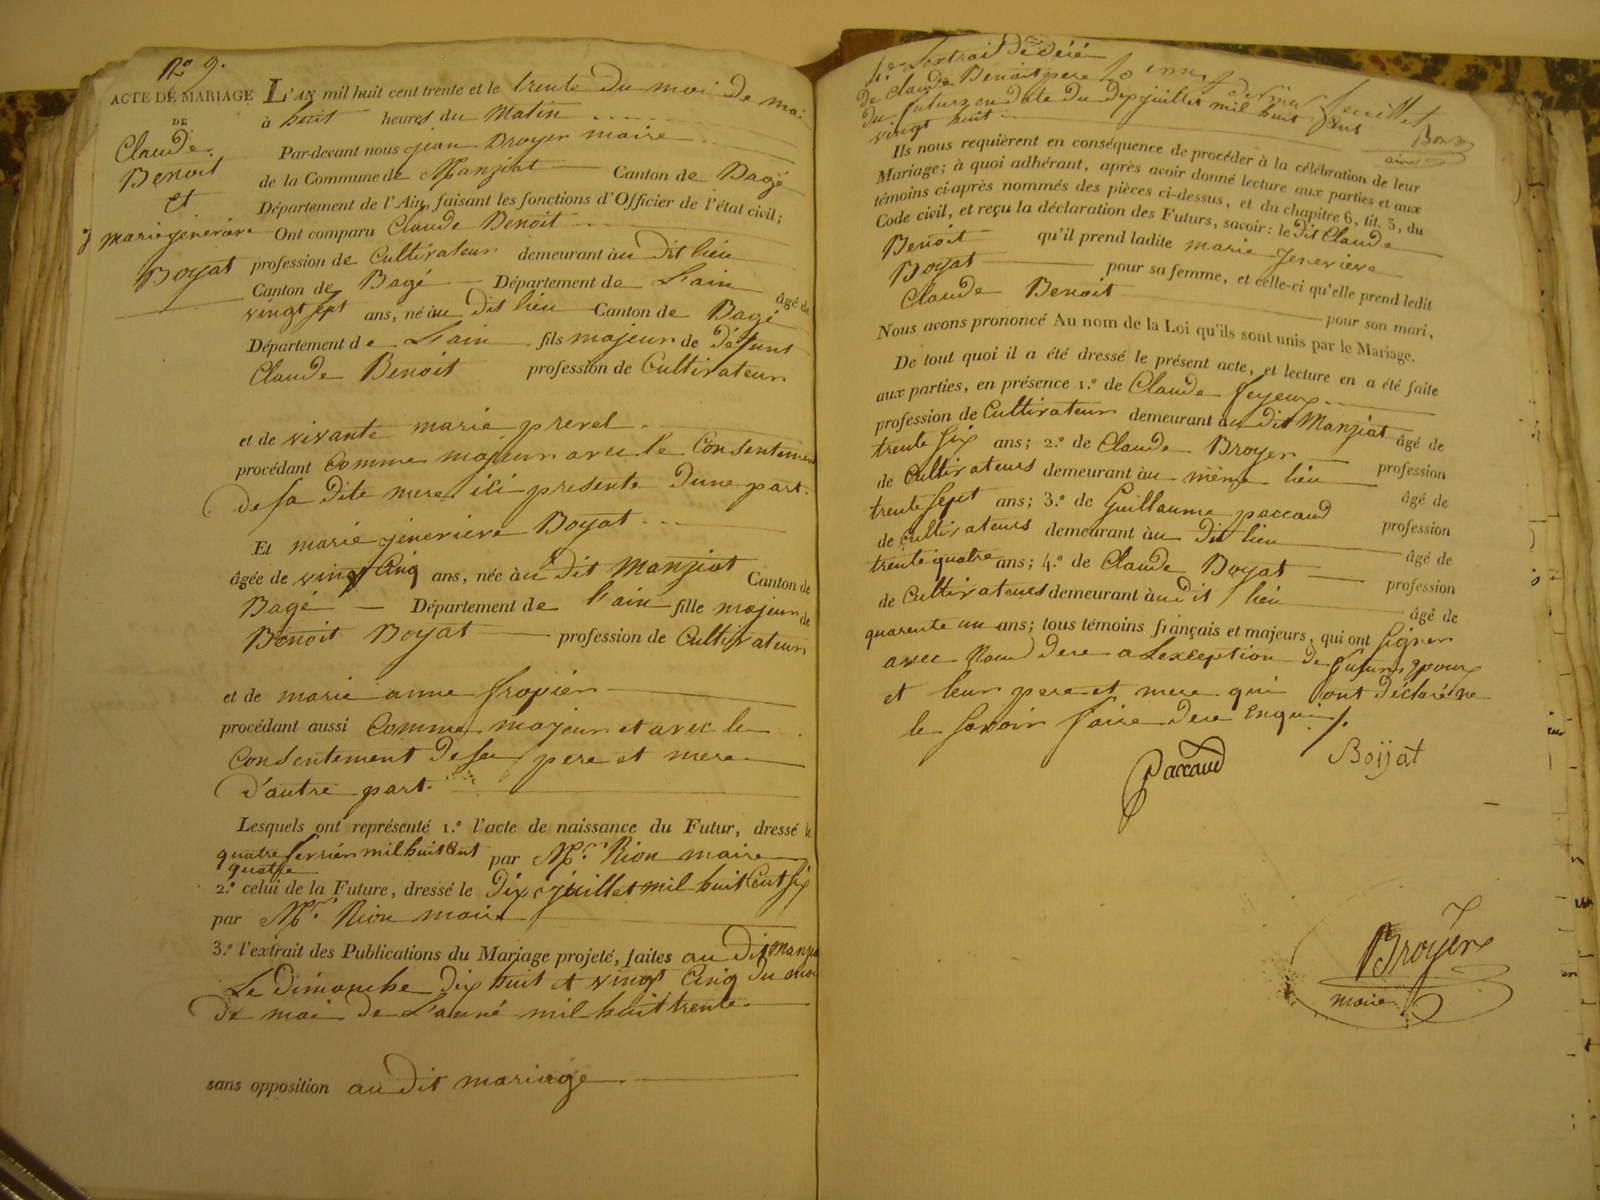 N.º 9.
ACTE DE MARIAGE
DE
Claude
Benoit
et
marie jenevieve
Boyat
L'AN mil huit cent trente et le trente Du moi De mai
à huit heures du Matin
Par-devant nous jean Broyer maire
de la Commune de Manziat Canton de Bagé
Département de l'Ain, faisant les fonctions d'Officier de l'état civil;
Ont comparu Claude Benoit
profession de Cultivateur demeurant à u Dit lieu
Canton de Bagé Département de L'ain âgé de
vingt sept ans, né à u Dit lieu Canton de Bagé
Département de L'ain fils majeur de Défunt
Claude Benoit profession de Cultivateur
et de vivante marie prevel
procédant Comme majeur avec le Consentement
De sa Dite mere ici presente D'une part.
Et marie jenevieve Boyat
âgée de vingt Cinq ans, née à u Dit Manziat Canton de
Bagé Département de l'ain fille majeur de
Benoit Boyat profession de Cultivateur
et de marie anne
procédant aussi Comme majeur et avec le
Consentement De ses pere et mere
D'autre part.
Lesquels ont représenté 1.º l'acte de naissance du Futur, dressé le
quatre fevrier mil huit Cent
quatre
par Mr. Rion maire
2.º celui de la Future, dressé le Dix juillet mil huit Cent six
par Mr. Rion maire
3.º l'extrait des Publications du Mariage projeté, faites au Dit Manziat
Le Dimanche Dix huit et vingt Cinq Du moi
De mai De L'anné mil huit trente
sans opposition au Dit mariage
4.º Lextrait De décé
De Claude Benoit pere
Du futur en Date Du Dix juillet mil huit Cent
vingt huit
feuillet
Ils nous requièrent en conséquence de procéder à la célébration de leur
Mariage; à quoi adhérant, après avoir donné lecture aux parties et aux
témoins ci-après nommés des pièces ci-dessus, et du chapitre 6, tit. 5, du
Code civil, et reçu la déclaration des Futurs, savoir: le Dit Claude
Benoit qu'il prend ladite marie Jenevieve
Boyat pour sa femme, et celle-ci qu'elle prend ledit
Claude Benoit pour son mari,
Nous avons prononcé Au nom de la Loi qu'ils sont unis par le Mariage.
De tout quoi il a été dressé le présent acte, et lecture en a été faite
aux parties, en présence 1.º de Claude feyeux
profession de Cultivateur demeurant à u Dit Manziat âgé de
trente six ans; 2.º de Claude Broyer profession
de Cultivateurs demeurant à u même lieu âgé de
trente sept ans; 3.º de Guillaume paccaud profession
de Cultivateurs demeurant à u Dit lieu âgé de
trente quatre ans; 4.º de Claude Boyat profession
de Cultivateurs demeurant à u Dit lieu âgé de
quarente un ans; tous témoins français et majeurs, qui ont signer
avec Nous Dece a Lexception De futurs
et leur pere et mere qui ont Déclaré ne
le savoir faire Dece Enqui
Paccaud
Boÿat
Broyer
maire